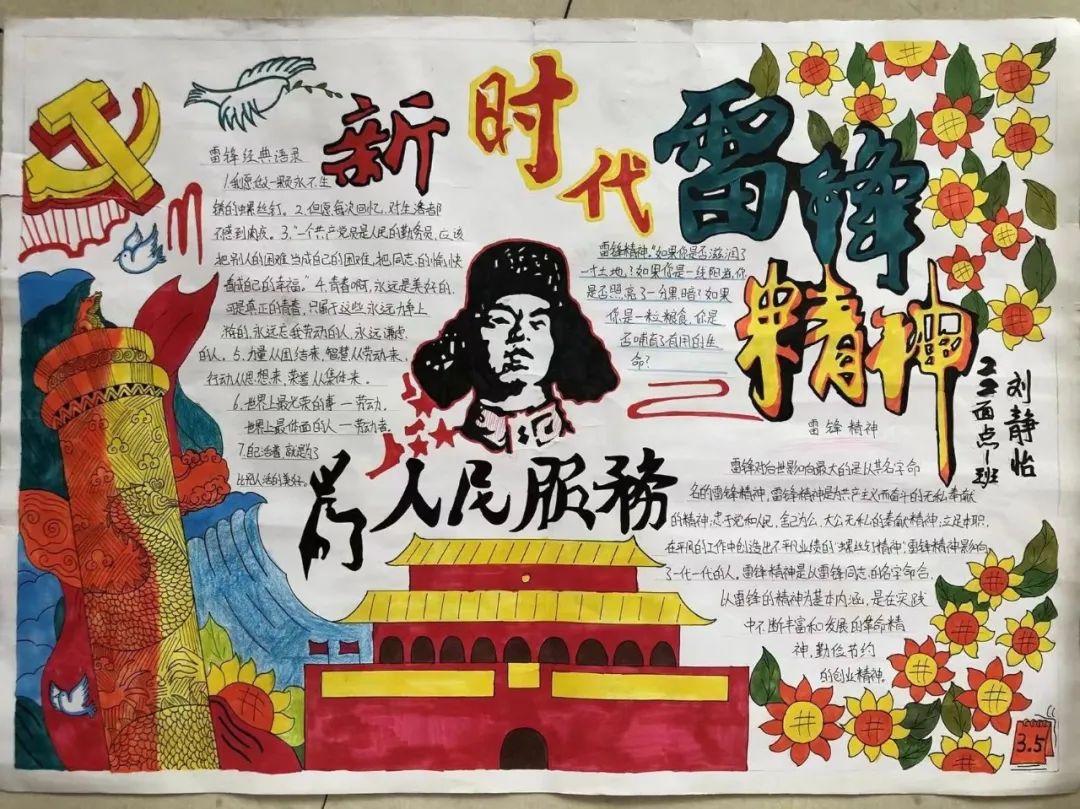 新时代
雷锋
精神
雷锋经典语录
1.我愿做一颗永不生
锈的螺丝钉。2.但愿每次回忆,对生活都
不感到疚。3."一个共产党员是人民的勤务员,应该
把别人的困难当成自己的困难,把同志的愉快
看成自己的幸福。"4.青春啊,永远是美好的,
可是真正的青春,只属于这些永远力争上
游的,永远忘我劳动的人,永远谦虚
的人。5.力量从团结来,智慧从劳动来,
行动从思想来,荣誉从集体来。
6.世界上最光荣的事—劳动。
世界上最体面的人—劳动者。
7.自己活着,就是为了
别人活的美好。
雷锋精神:"如果你是否滋润了
一寸土地?如果你是一线阳光,你
是否照亮了一分黑暗?如果
你是一粒粮食,你是
否哺育了有用的生
命?
22面点1班
刘静怡
为人民服務
雷锋精神
雷锋对后世影响最大的是以其名字命
名的雷锋精神,雷锋精神是为共产主义而奋斗的无私奉献
的精神;忠于党和人民,舍己为公、大公无私的奉献精神;立足本职、
在平凡的工作中创造出不平凡业绩的"螺丝钉精神"。雷锋精神影响
了一代一代的人。雷锋精神是以雷锋同志的名字命名,
以雷锋的精神为基本内涵,是在实践
中不断丰富和发展的革命精
神,勤俭节约
的创业精神。
3.5